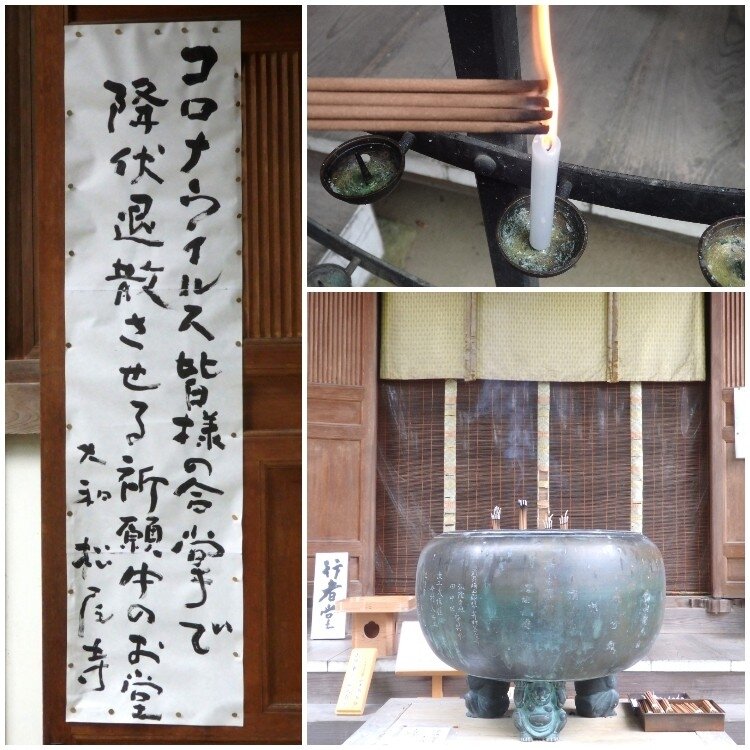 コロナウイルス皆様の合掌で
降伏退散させる祈願中のお堂
大和 松尾寺
行者堂